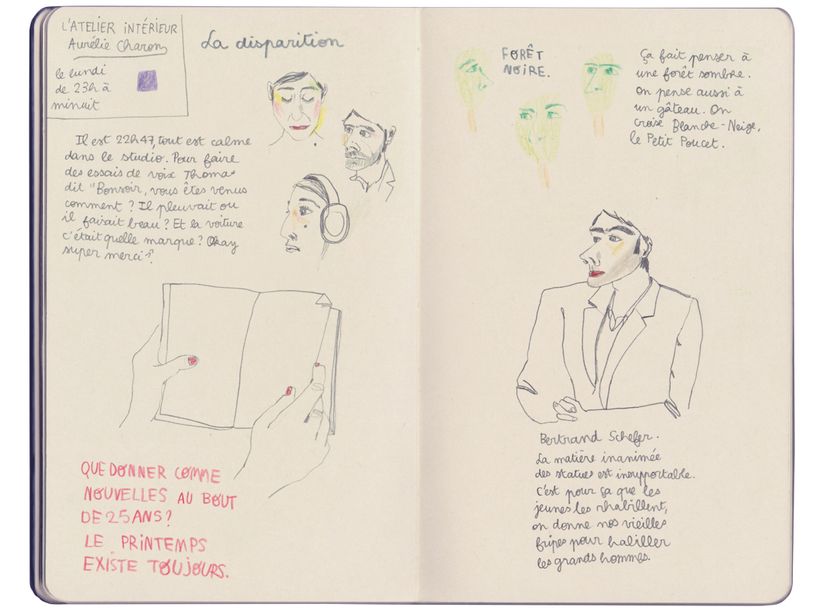 L'ATELIER INTÉRIEUR
Aurélie Charon
le lundi
de 23h à
minuit
La disparition
Il est 22h47, tout est calme
dans le studio. Pour faire
des essais de voix Thomas
dit "Bonsoir, vous êtes venus
comment ? Il pleuvait ou
il faisait beau ? Et la voiture
c'était quelle marque ? Okay
super merci".
QUE DONNER COMME
NOUVELLES AU BOUT
DE 25 ANS ?
LE PRINTEMPS
EXISTE TOUJOURS.
FORÊT
NOIRE.
Ça fait penser à
une forêt sombre.
On pense aussi à
un gâteau. On
croise Blanche-Neige,
le Petit Poucet.
Bertrand Schefer.
La matière inanimée
des statues est insupportable.
C'est pour ça que les
jeunes les rhabillent,
on donne nos vieilles
fripes pour habiller
les grands hommes.